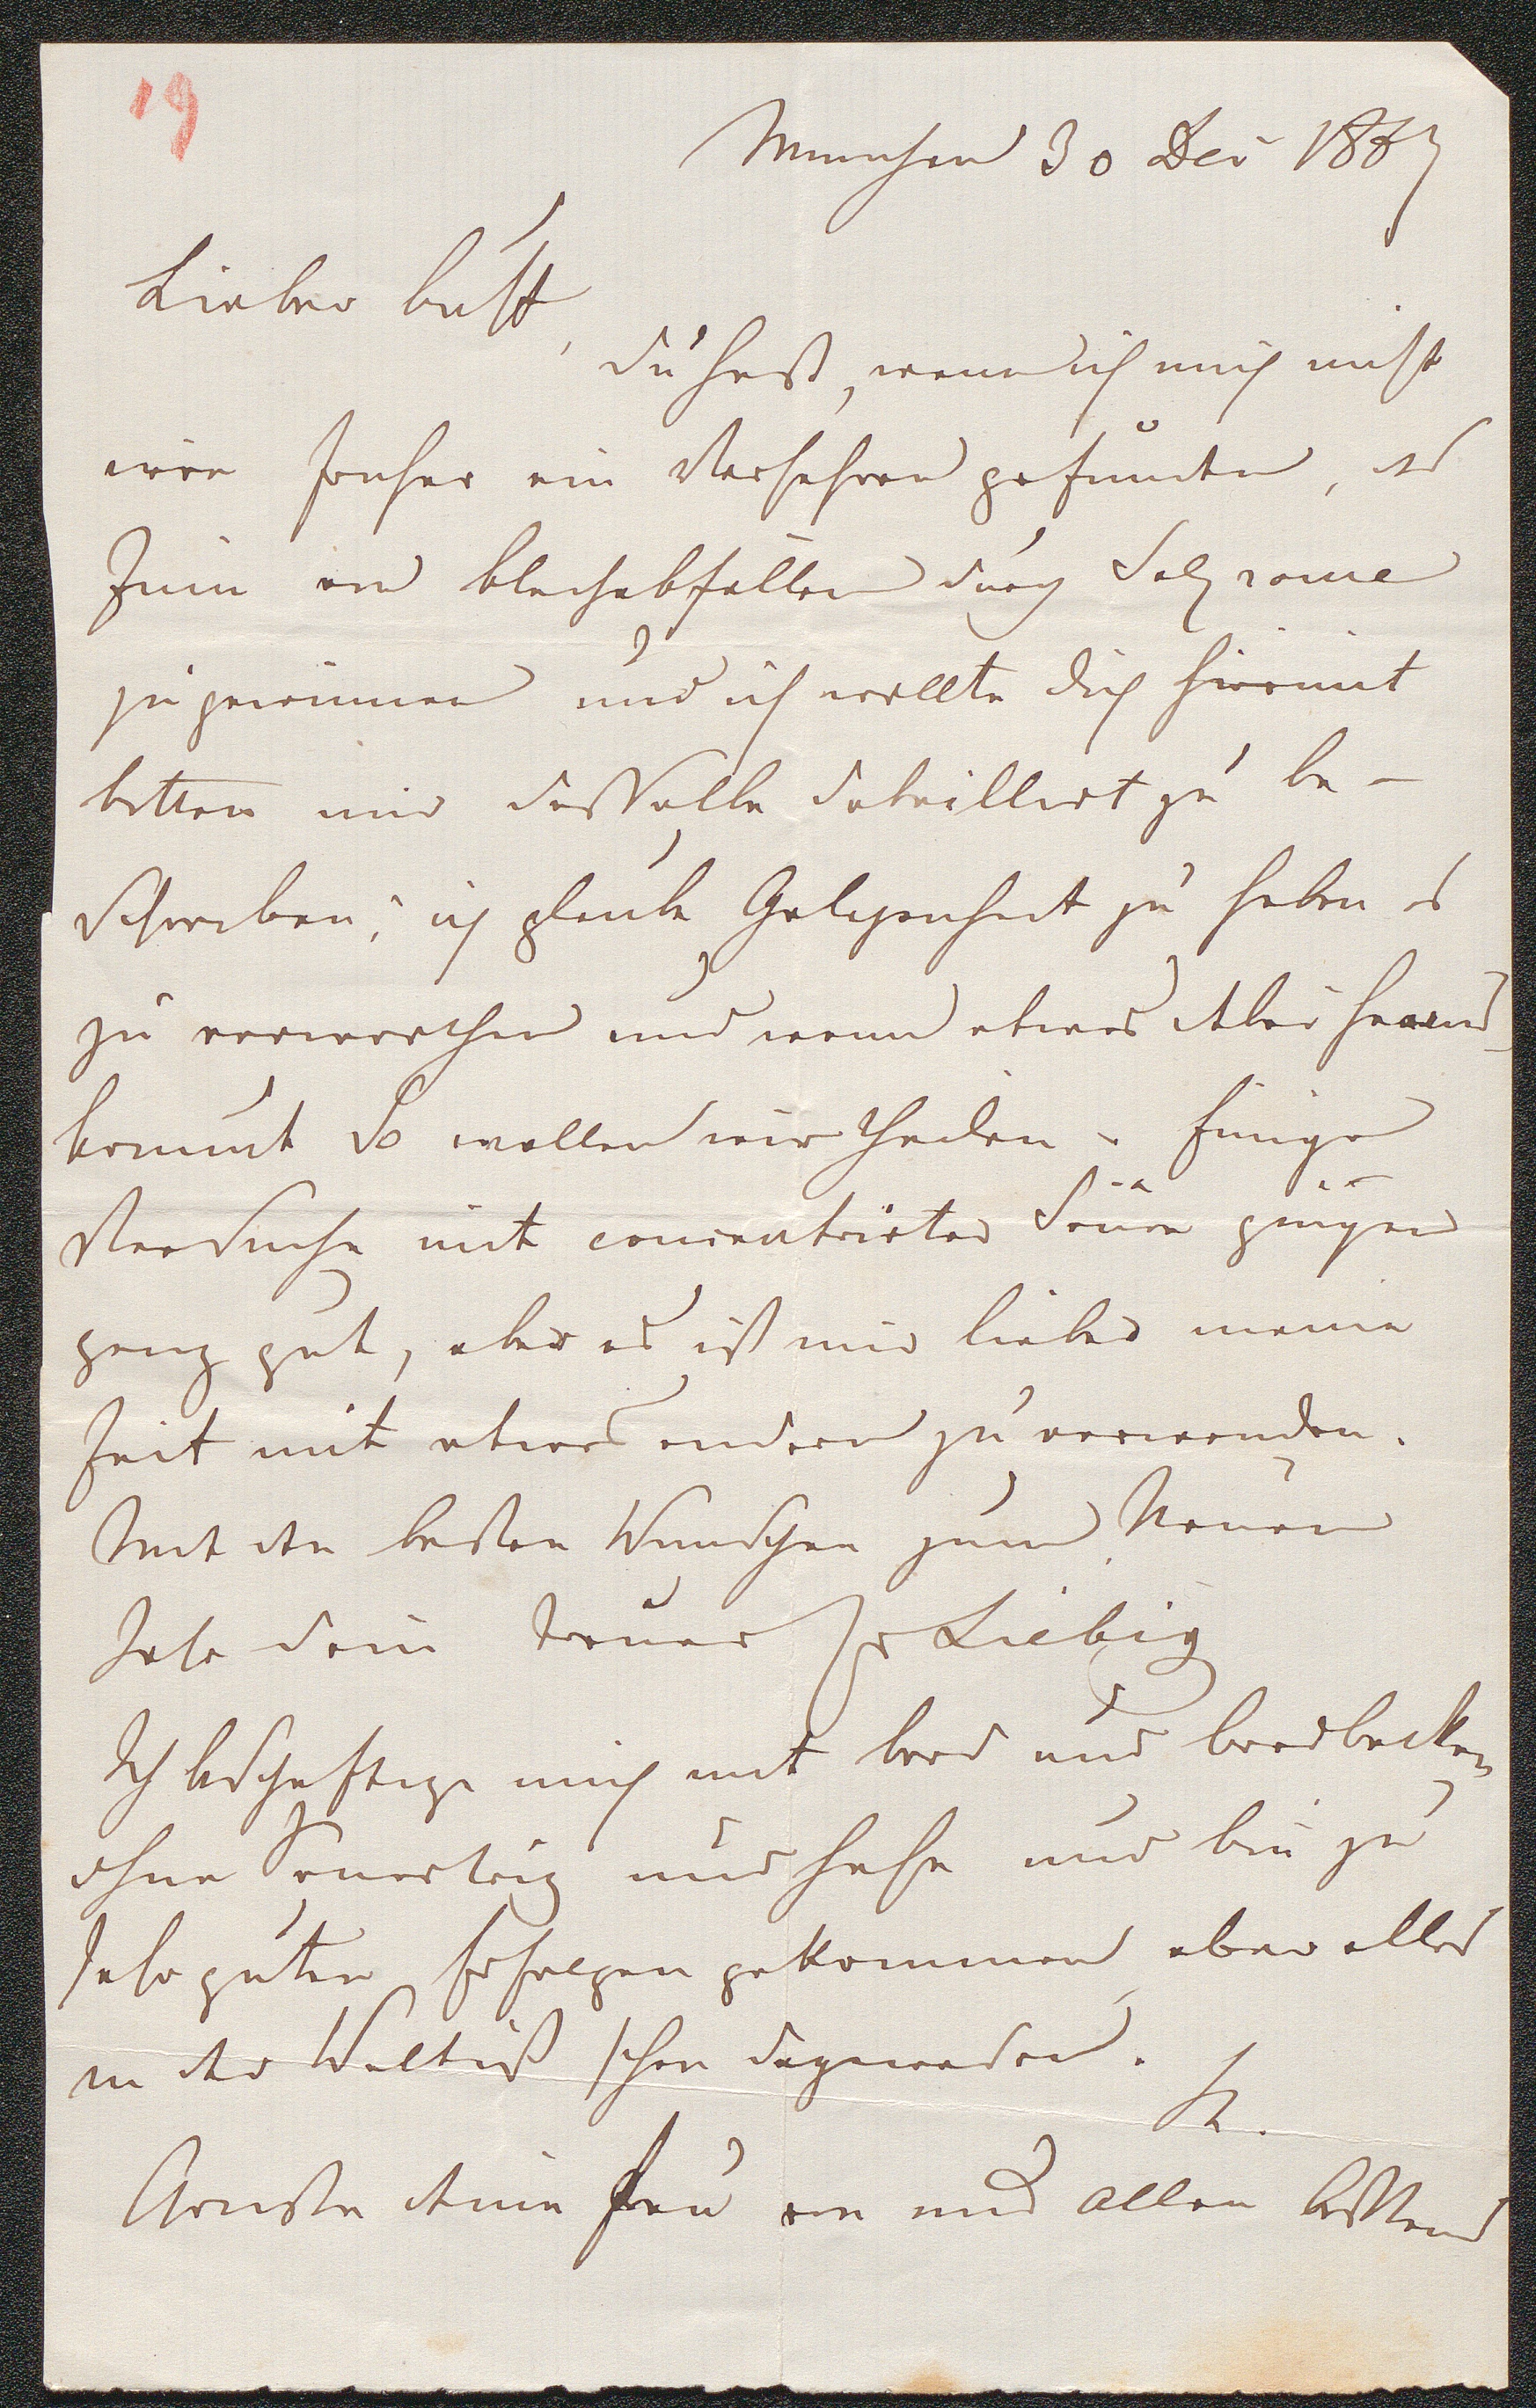 19
München 30 Dec 1867
Lieber Buff,
Du hast, wenn ich mich nicht
irre früher ein Verfahren gefunden, das
Zinn von Blechabfällen durch Salzsäure
zu gewinnen und ich wollte dich hiermit
bitten mir dasselbe detaillirt zu be-
schreiben; ich glaube Gelegenheit zu haben es
zu verwerthen und wenn etwas dabei heraus
kommt so wollen wir theilen. Einige
Versuche mit concentrirter Säure gingen
ganz gut, aber es ist mir lieber meine
Zeit mit etwas anderm zu verwenden.
Mit den besten Wünschen zum Neuen
Jahr dein treuer Jv Liebig
Ich beschäftige mich mit Brod und Brodbacken
ohne Sauerteig und Hefe und bin zu
sehr guten Erfolgen gekommen, aber alles
in der Welt ist schon dagewesen.
Grüsse deine Frau von uns allen bestens